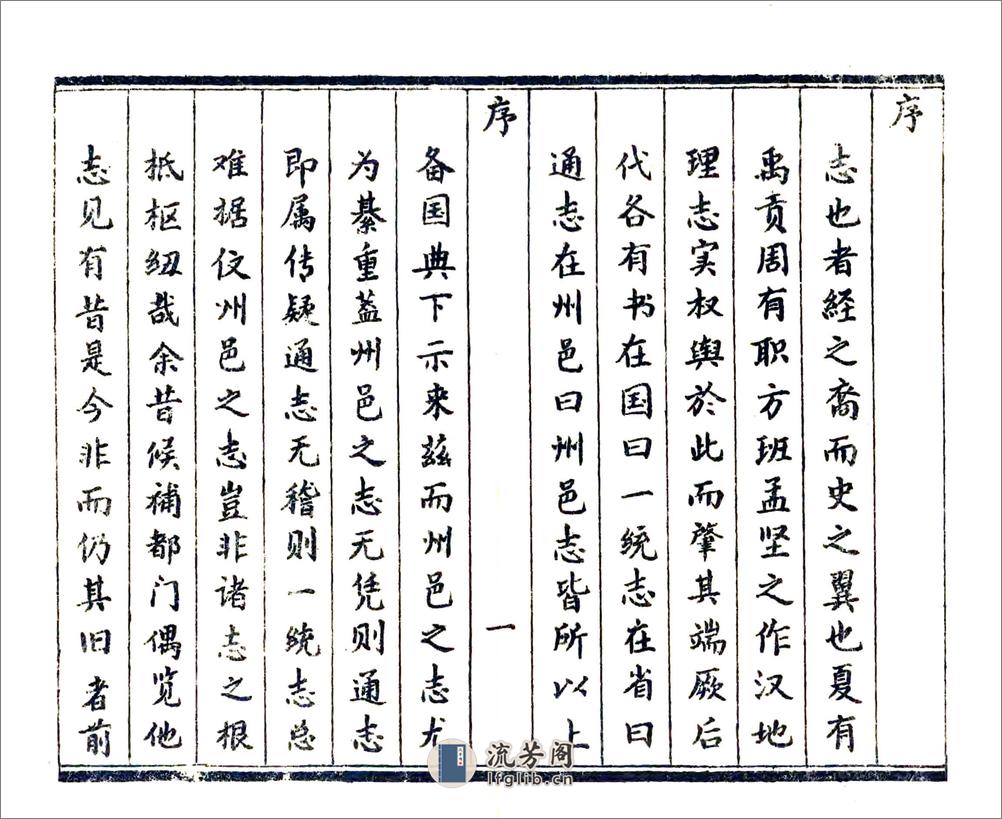 序
志也者经之裔而史之翼也夏有
禹贡周有职方班孟坚之作汉地
理志实权舆於此而肇其端厥后
代各有书在国曰一统志在省曰
通志在州邑曰州邑志皆所以上
序
一
备国典下示来兹而州邑之志尤
为綦重盖州邑之志无凭则通志
即属传疑通志无稽则一统志总
难据仗州邑之志岂非诸志之根
柢枢纽哉余昔候补都门偶览他
志见有昔是今非而仍其旧者前
流芳阁
lfglib.cn